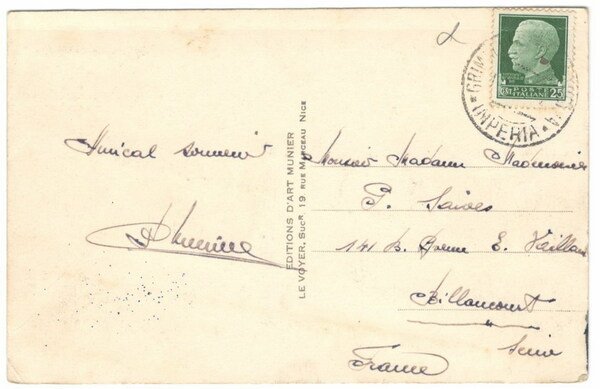 Amical souvenir
EDITIONS D'ART MUNIER
LE VOYER, SUCR 19 RUE MARCEAU NICE
POSTE
ITALIANE
25
GRIM
IMPERIA
Monsieur Madame Mademoiselle
P.
141 B. E. Vaillant
Billancourt
Seine
France